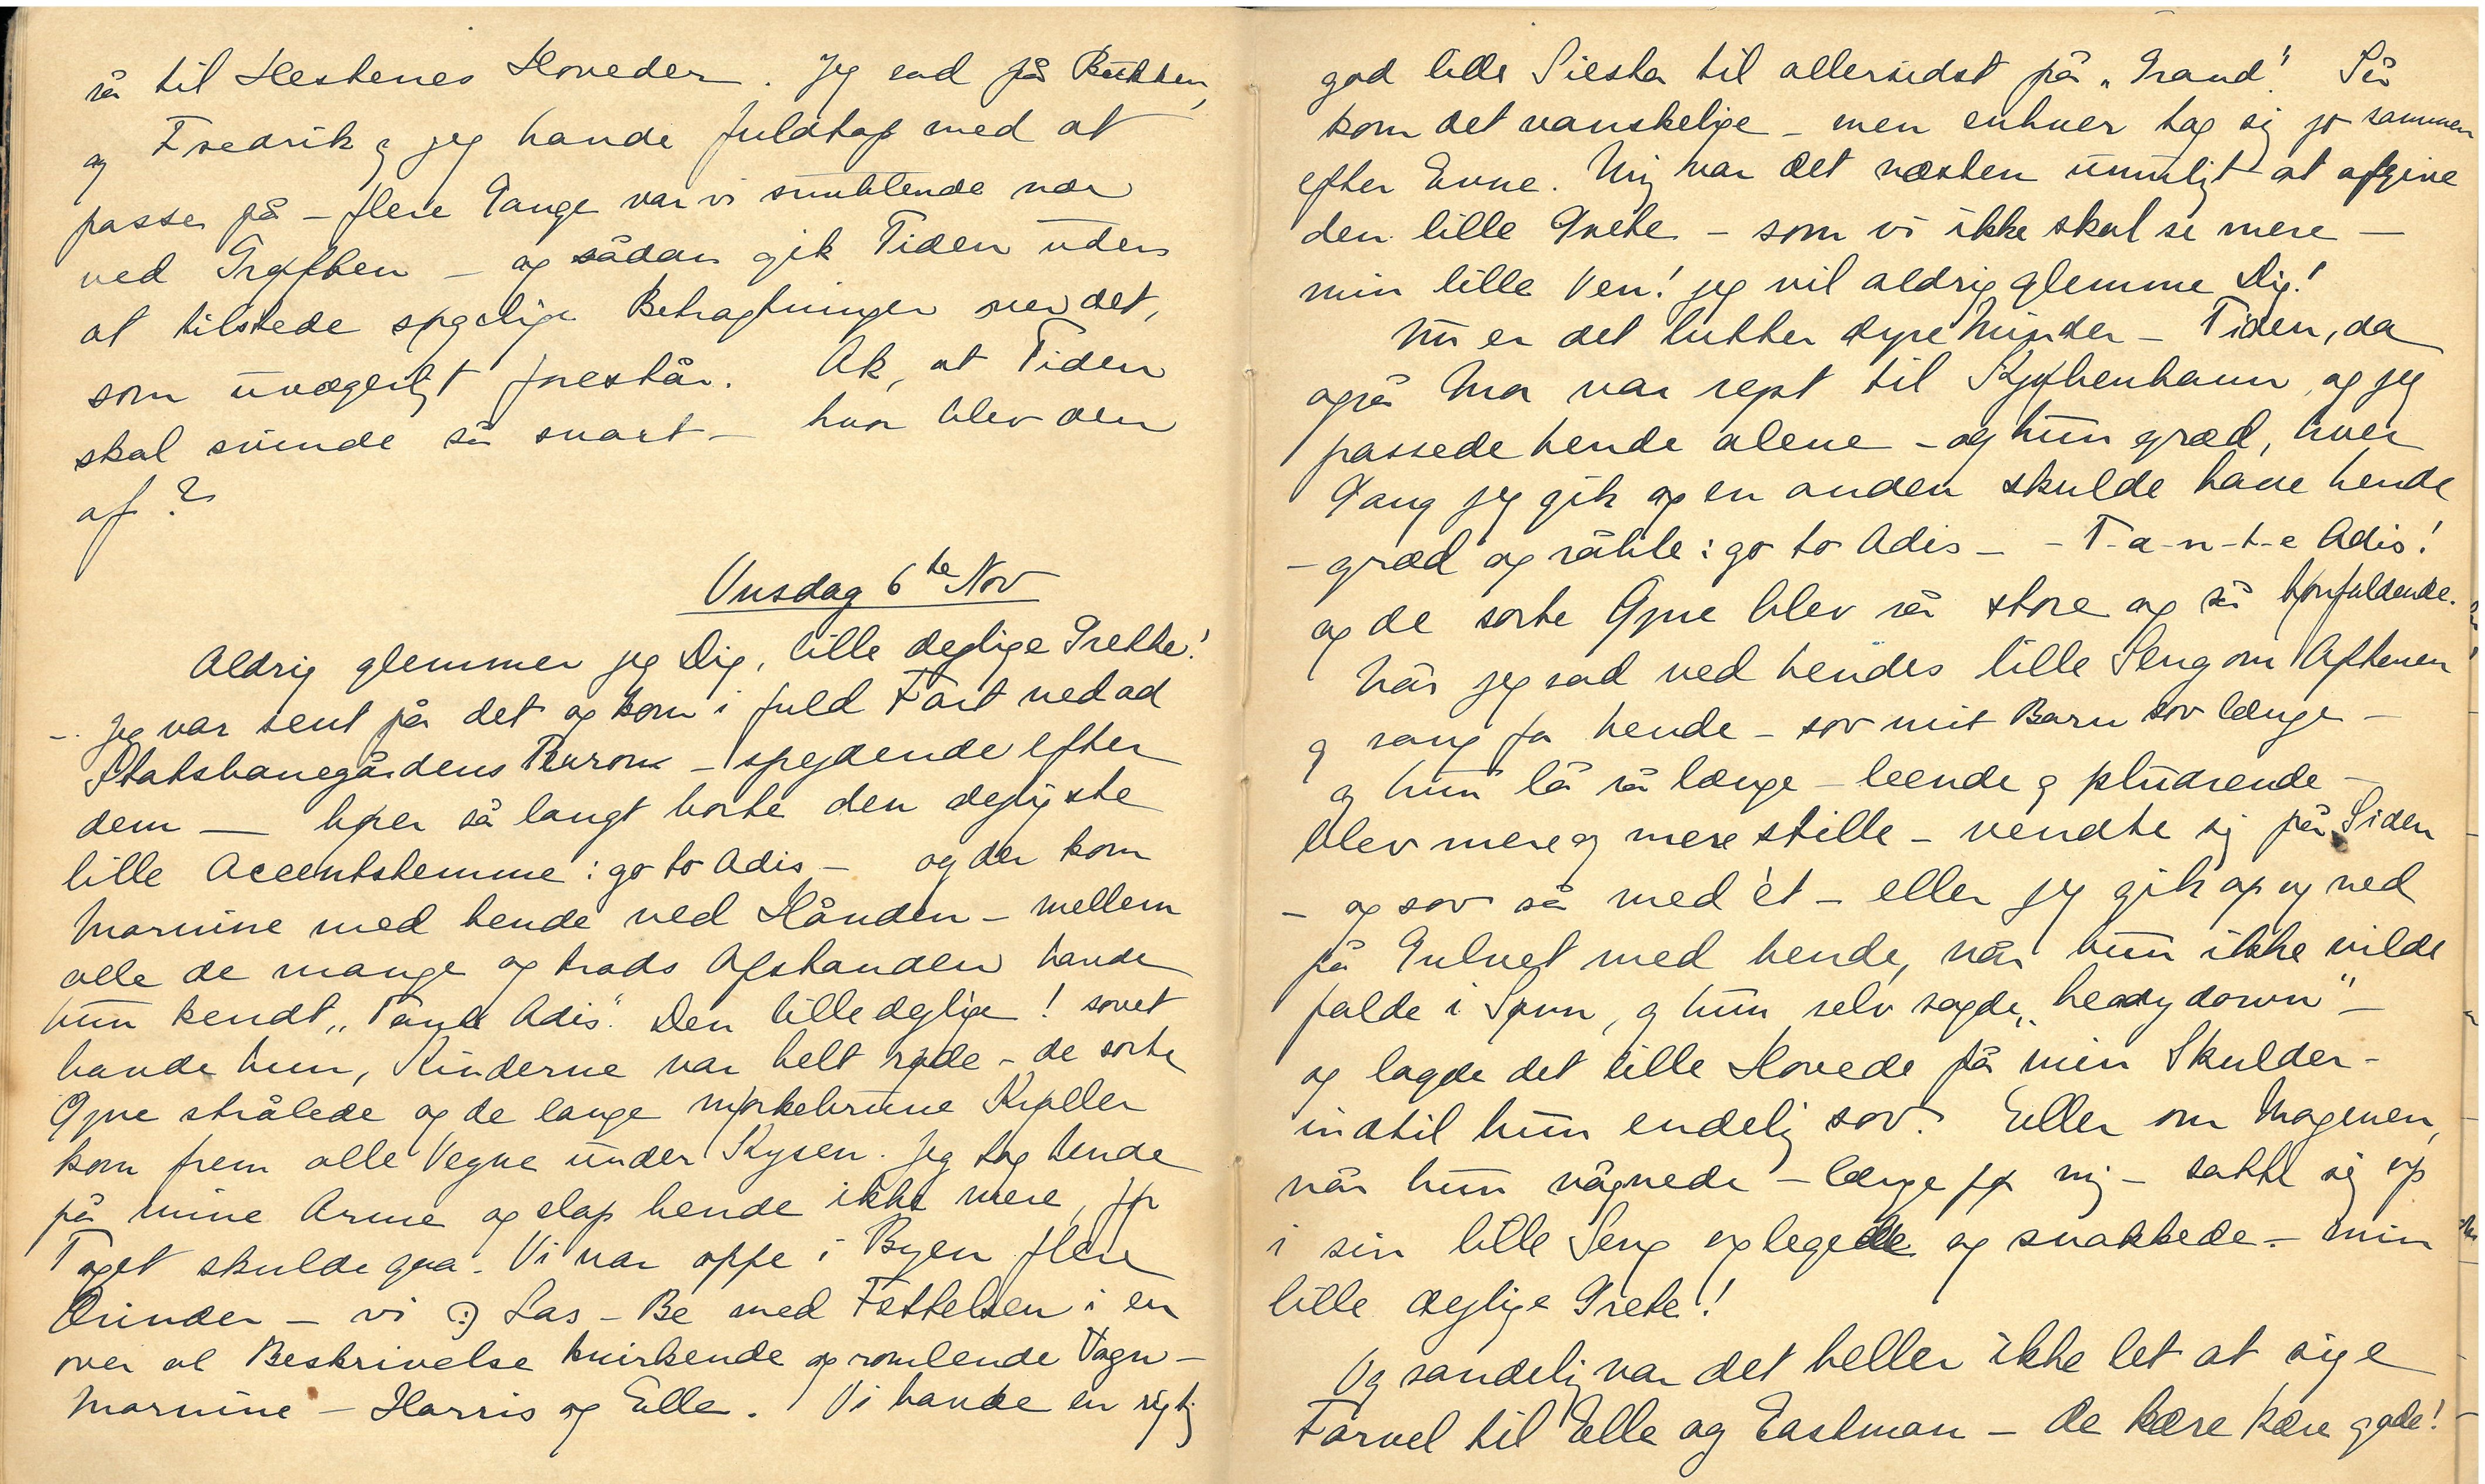 så til Hestenes Hoveder. Jeg sad på Bukken,
og Fredrik og jeg havde fuldtop med at
passe på – flere Gange var vi smuttende nær
ved Grøften – og sådan gik Tiden uden
at tilstede sørgelige Betragtninger over det,
som uvægerligt forestår. Ak, at Tiden
skal svinde så snart – hvor blev den
af?
Onsdag 6te Nov
Aldrig glemmer jeg Dig, lille dejlige Grethe!
– Jeg var sent på det og kom i fuld Fart ned ad
Statsbanegårdens Perron – spejdende efter
dem — hører så langt borte den dejligste
lille Accentstemme: go to Adis – og der kom
Mornine med hende ved Hånden – mellem
alle de mange og trods Afstanden havde
hun kendt „Tante Adis“. Den lille dejlige! sovet
havde hun, Kinderne var helt røde – de sorte
Øjne strålede og de lange mørkebrune Krøller
kom frem alle Vegne under Kysen. Jeg tog hende
på mine Arme og slap hende ikke mere, før
Toget skulde gaa. Vi var oppe i Byen flere
Ærinder – vi ɔ: Las – Be med Fættelsen i en
over al Beskrivelse knirkende og romlende Vogn –
Mornine – Harris og Elle. Vi havde en rigtig
god lille Siesta til allersidst på „Grand“. Så
kom det vanskelige – men enhver tog sig jo sammen
efter Evne. Mig var det næsten umuligt at afgive
den lille Grete – som vi ikke skal se mere –
min lille Ven! jeg vil aldrig glemme Dig!
Nu er det lutter dyre Minder – Tiden, da
også Mor var rejst til Kjøbenhavn, og jeg
passede hende alene – og hun græd, hver
Gang jeg gik og en anden skulde have hende
– græd og råbte: go to Adis – – T-a-n-t-e Adis!
og de sorte Øjne blev så store og så bønfaldende.
Når jeg sad ved hendes lille Seng om Aftenen
og sang for hende – sov mit Barn sov længe –
og hun lå så længe – leende og pludrende –
blev mere og mere stille – vendte sig på Siden
– og sov så med ét – eller jeg gik op og ned
på Gulvet med hende, når hun ikke vilde
falde i Søvn, og hun selv sagde „heady down“ –
og lagde det lille Hovede på min Skulder –
indtil hun endelig sov. Eller om Morgenen,
når hun vågnede – længe før mig – satte sig op
i sin lille Seng og legede og snakkede – min
lille dejlige Grete!
Og sandelig var det heller ikke let at sige
Farvel til Elle og Eastman – de kære kære gode!